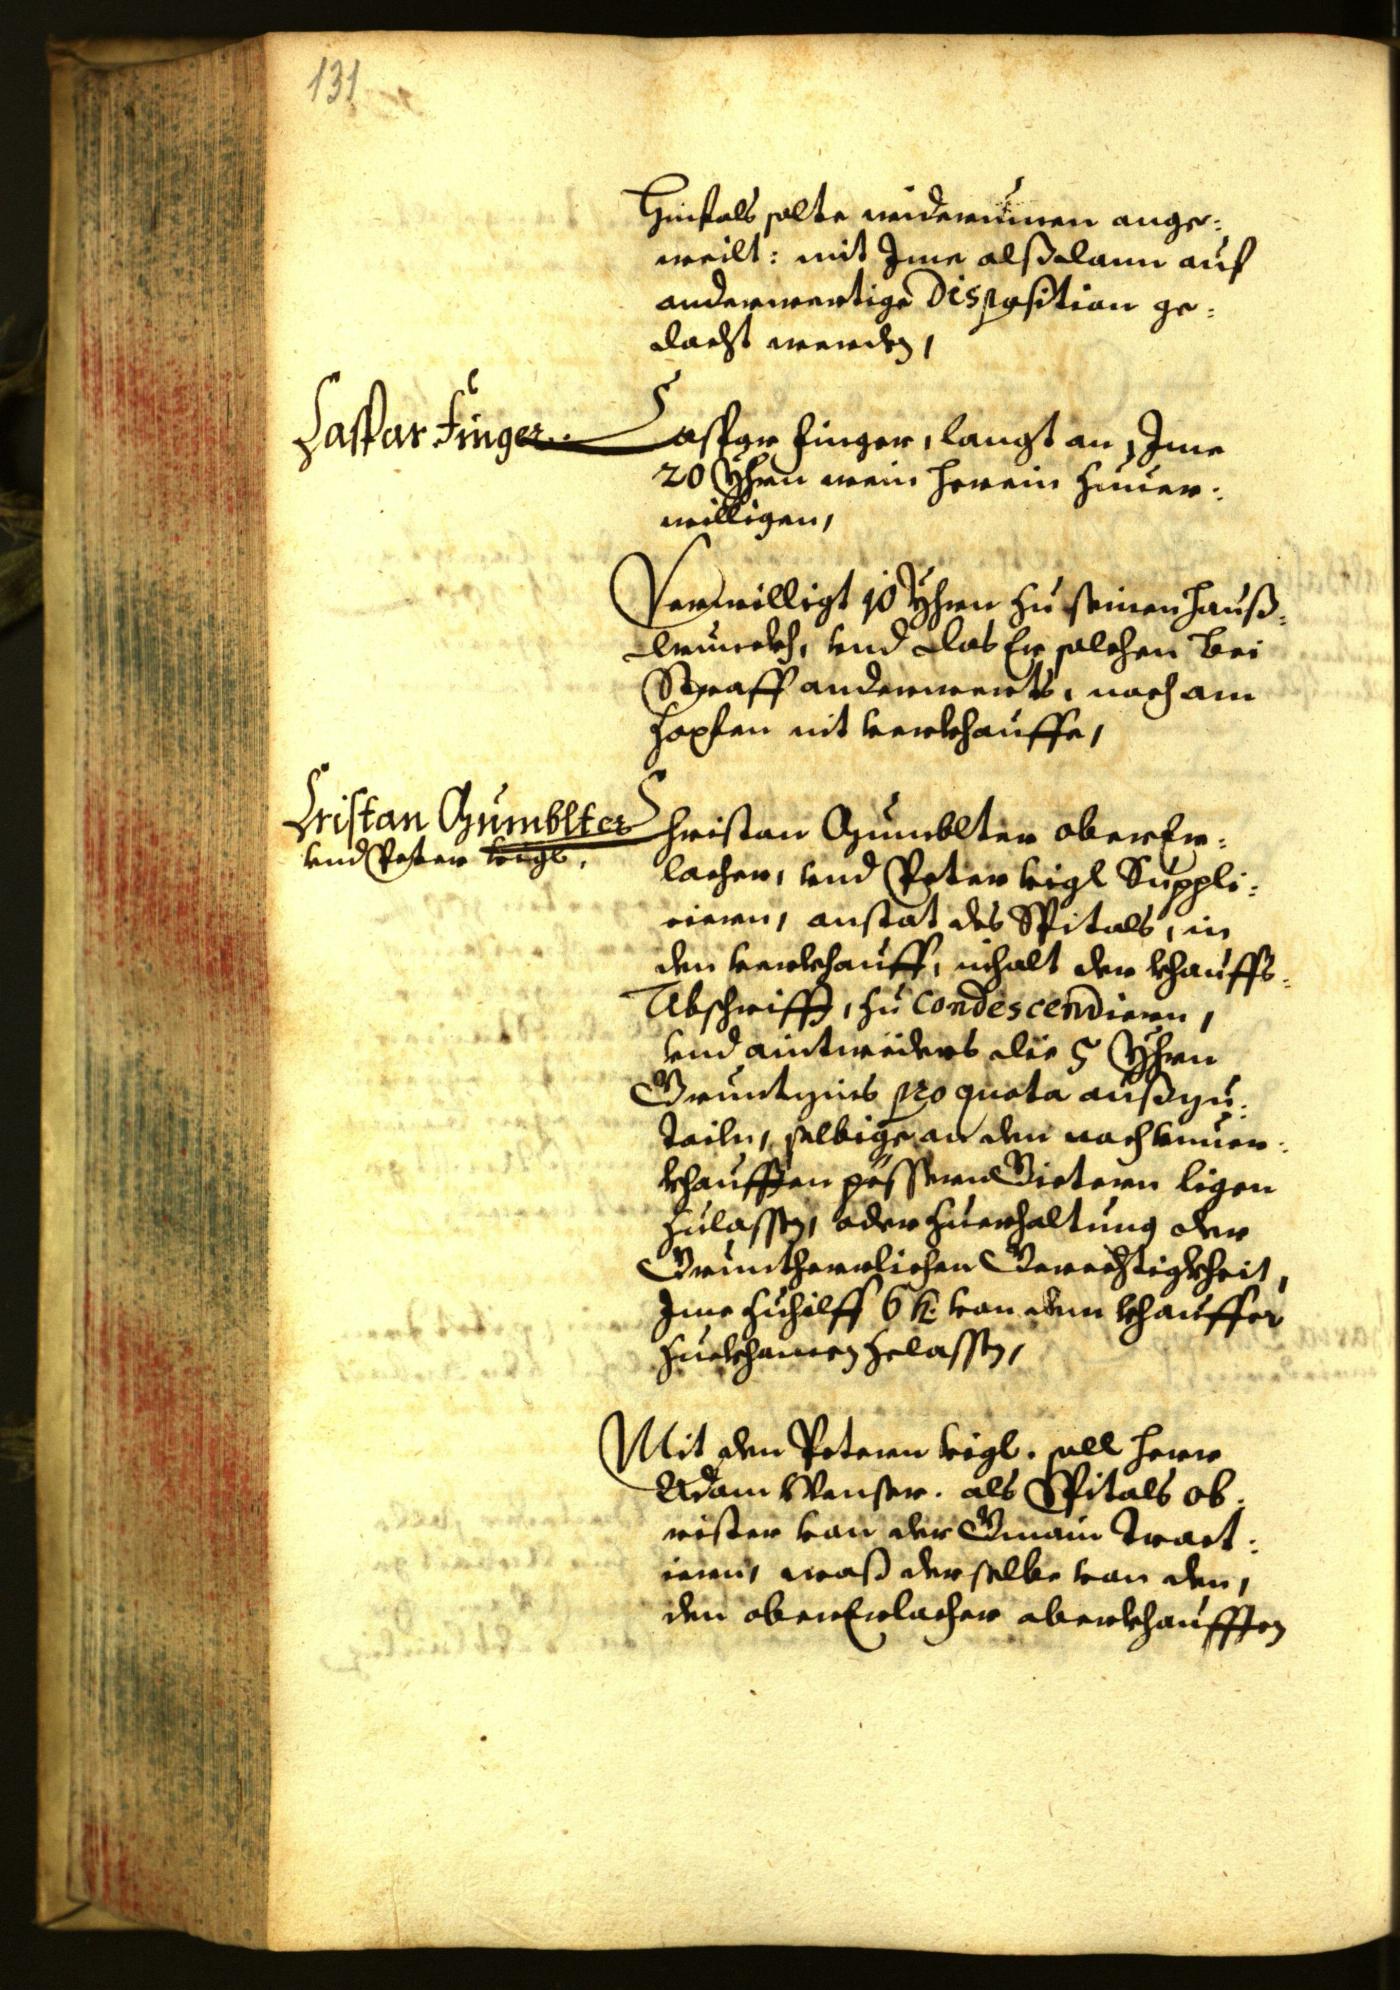 131
solte widerumen ange¬
weilt: mit Ime alßdann auf
anderwertige Disposition ge¬
dacht werden,
Caspar Finger
Caspar Finger, langt an, Ime
20 Yhrn wein herein zuuer¬
willigen,
Verwilligt 10 Yhrn zu seinen hauß¬
trunckh, vnd das Er solchen bei
Straff anderwerts, noch am
Zapfen nit verkhauffe,
Cristan Gumblter
vnd Peter vigl,
Christan Gumblter oberEr¬
lacher, vnd Peter vigl Suppli¬
cieren, anstat des Spitals, in
den verkhauff, inhalt der khauffs¬
Abschrifft, zu Condescendieren,
vnd aintweders die 5 Yhrn
Gruntzins pro quota außzu¬
tailn, selbige an den noch vnuer¬
khaufften pessern Gietern ligen
zulassen, oder zuerhaltung der
Gruntherrlichen Gerechtigkheit,
Ime zuhilff 6 k. von dem khauffer
zuekhamen zelassen,
Mit den Petern vigl. soll herr
Adam Wenser. als Spitals ob¬
rister von der Gmain Tract¬
ieren, waß derselbe von den,
den oberErlacher aberkhaufften